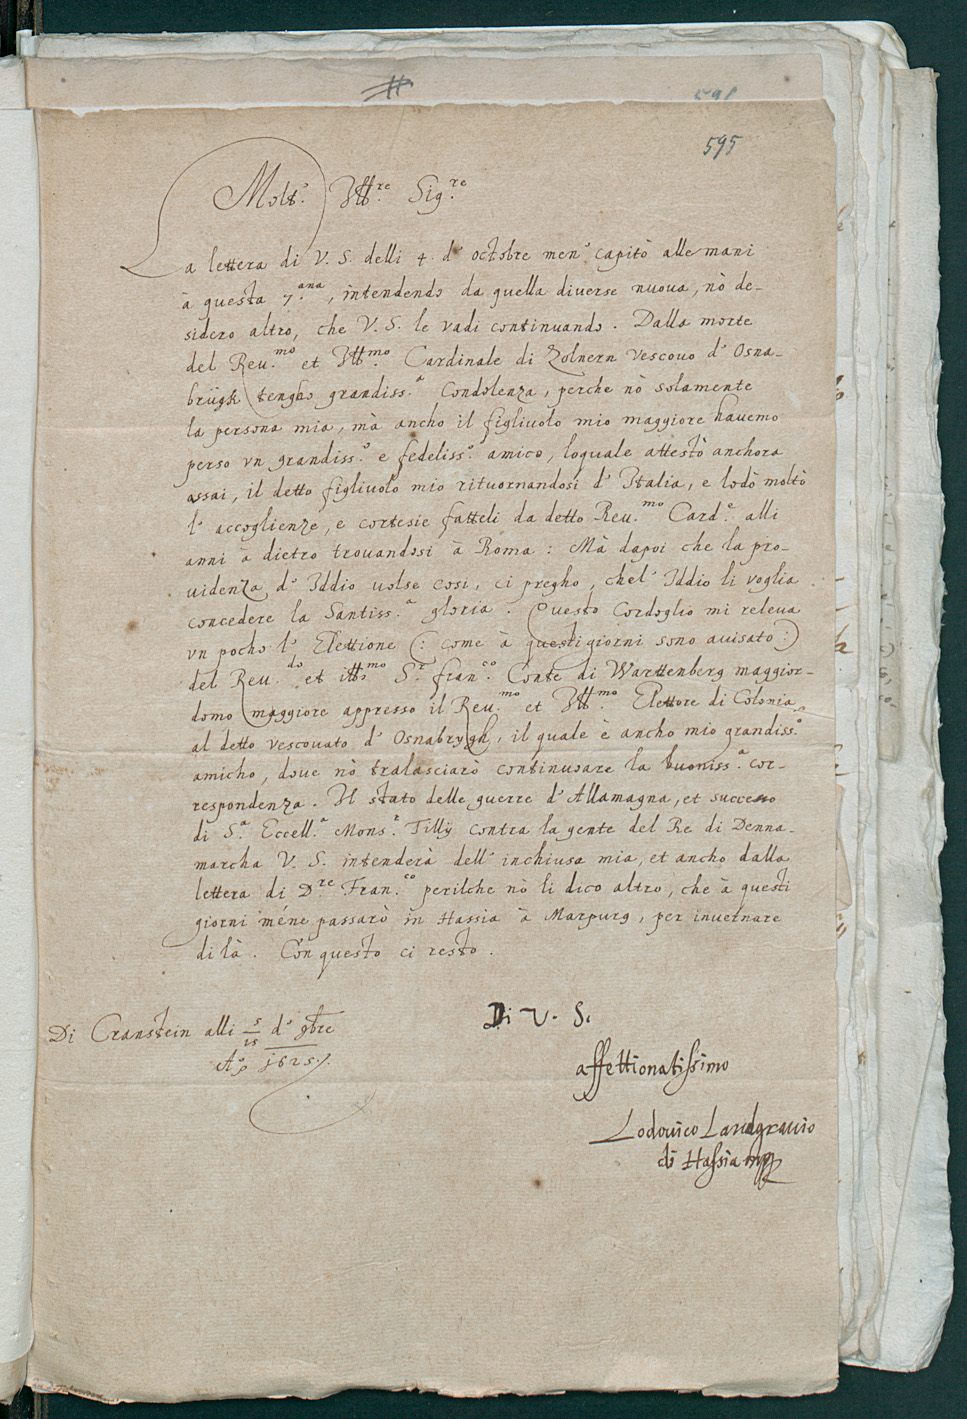 595
Molt.º Ill.re Sig.re
La lettera di V. S. delli 4. d' octobre men' capitò alle mani
à questa 7.ana, intendendo da quella diverse nuova, nō de-
sidero altro, che V. S. le vadi continuando. Dalla morte
del Reu.mo et Ill.mo Cardinale di Zolnern Vescouo d' Osna-
brügk tengho grandiss.a Condolenza, perche nō solamente
la persona mia, mà ancho il figliuolo mio maggiore havemo
perso vn grandiss.o e fedeliss.o amico, loquale attestò anchora
assai, il detto figliuolo mio rituornandosi d' Italia, e lodò moltò
l' accoglienze, e cortesie fatteli da detto Reu.mo Card.e alli
anni à dietro trouandosi à Roma: Mà dapoi che la pro-
uidenza d' Iddio uolse cosi, ci pregho, chel' Iddio li voglia
concedere la Santiss.a gloria. Questo Cordoglio mi releua
vn pocho l' Elettione (: come à questi giorni sono auisato :)
del Reu.do et ill.mo S.r fran.co Conte di Warttenberg maggior-
domo maggiore appresso il Reu.mo et Ill.mo Elettore di Colonia
al detto vescouato d' Osnabrygh, il quale è ancho mio grandiss.o
amicho, doue nō tralasciarò continuoare la buoniss.a cor-
respondenza. Il stato delle guerre d' Allamagna, et successo
di S.a Eccell.a Mons.r Tilly contra la gente del Re di Denna-
marcha V. S. intenderà dell' inchiusa mia, et ancho dalla
lettera di D.re Fran.co perilche nō li dico altro, che à questi
giorni méne passarò in Hassia à Marpurg, per invernare
di là. Con questo ci resto.
Di V. S.
Di Cranstein alli 5/15 d' 9bre
Aº 1625.
affettionatissimo
Lodovico Landgravio
di Hassia mp